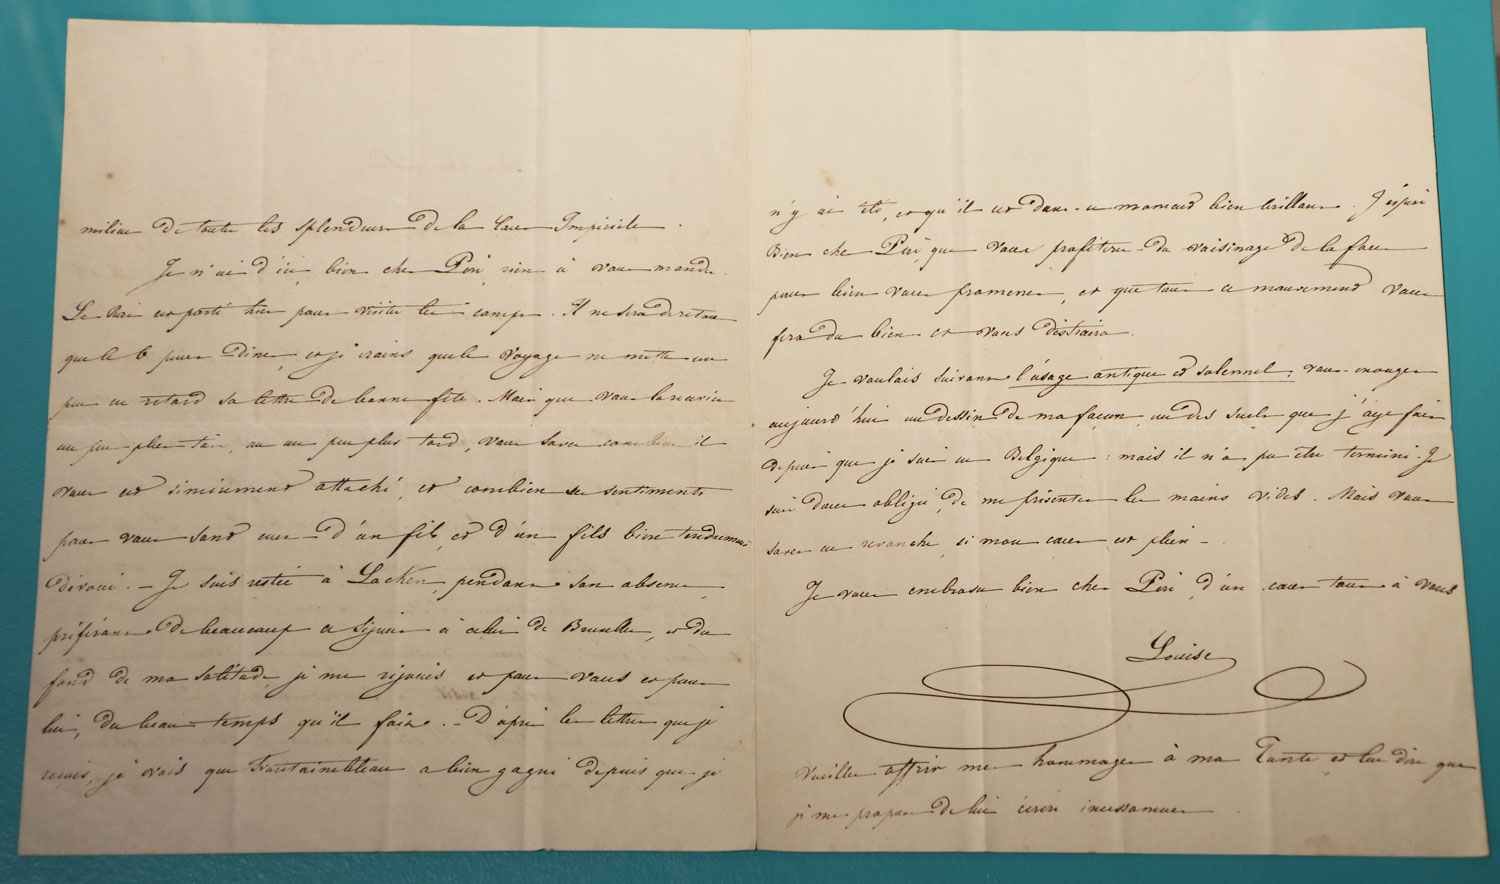 milieu de toutes les splendeurs de la Cour Impériale.
Je n'ai d'ici, bien cher Péri, rien à vous mander.
Le Roi est parti hier pour visiter les camps. Il ne sera de retour
que le 6 pour dîner, et je crains que le voyage ne mette un
peu en retard sa lettre de bonne fête. Mais que vous la receviez
un peu plus tôt, ou un peu plus tard, vous savez combien il
vous est sincèrement attaché, et combien ses sentiments
pour vous sont ceux d'un fils, et d'un fils bien tendrement
dévoué. – Je suis restée à Lacken, pendant son absence,
préférant de beaucoup ce séjour à celui de Bruxelles, et du
fond de ma solitude, je me réjouis et pour vous et pour
lui, du beau temps qu'il fait. – D'après les lettres que je
reçois, je vois que Fontainebleau a bien gagné depuis que je
n'y ai été, et qu'il est dans un moment bien brillant. J'espère
Bien cher Péri, que vous profiterez du voisinage de la forêt
pour bien vous promener, et que tout ce mouvement vous
fera du bien et vous distraira.
Je voulais suivant l'usage antique et solennel, vous envoyer
aujourd'hui un dessin de ma façon, un des seuls que j'aye fait
depuis que je suis en Belgique : mais il n'a pu être terminé. Je
suis donc obligée, de me présenter les mains vides. Mais vous
savez en revanche, si mon cœur est plein –
Je vous embrasse bien cher Péri, d'un cœur tout à vous
Louise
Veuillez offrir mes hommages à ma Tante, et lui dire que
je me propose de lui écrire incessamment.